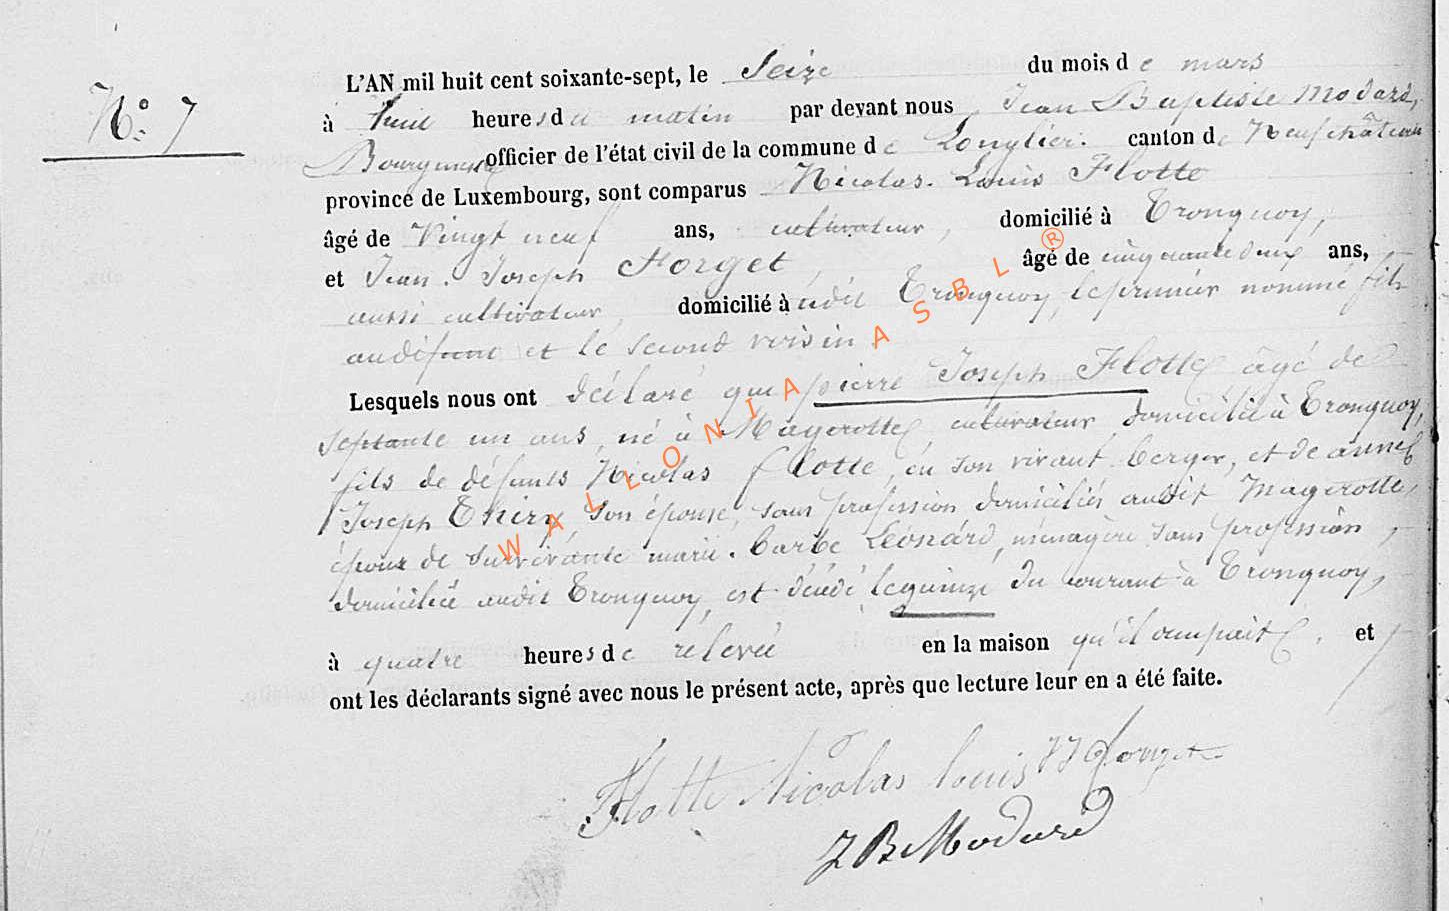 N° 7
L'AN mil huit cent soixante-sept, le Seize du mois de mars
à huit heures du matin par devant nous, Jean Baptiste Modard,
Bourgmestre officier de l'état civil de la commune de Longlier. canton de Neufchâteau
province de Luxembourg, sont comparus Nicolas. Louis Flotte
âgé de Vingt neuf ans, cultivateur, domicilié à Tronquoy,
et Jean. Joseph Forget, âgé de cinquante deux ans,
aussi cultivateur, domicilié à udit Tronquoy, le premier nommé fils
audéfunt et le second voisin
Lesquels nous ont déclaré que pierre Joseph Flotte âgé de
septante un ans, né à Magerotte, cultivateur domicilié à Tronquoy,
fils de défunts Nicolas flotte, en son vivant berger, et de anne
Joseph Thiry son épouse, sans profession domiciliés audit Magerotte,
époux de survivante marie. barbe Léonard, ménagère sans profession,
domiciliée audit Tronquoy, est décédé le quinze du courant à Tronquoy,
à quatre heures de relevée en la maison qu'il occupait, et
ont les déclarants signé avec nous le présent acte, après que lecture leur en a été faite.
Flotte Nicolas louis JJ Forget
J B Modard
WALLONIA ASBL ®